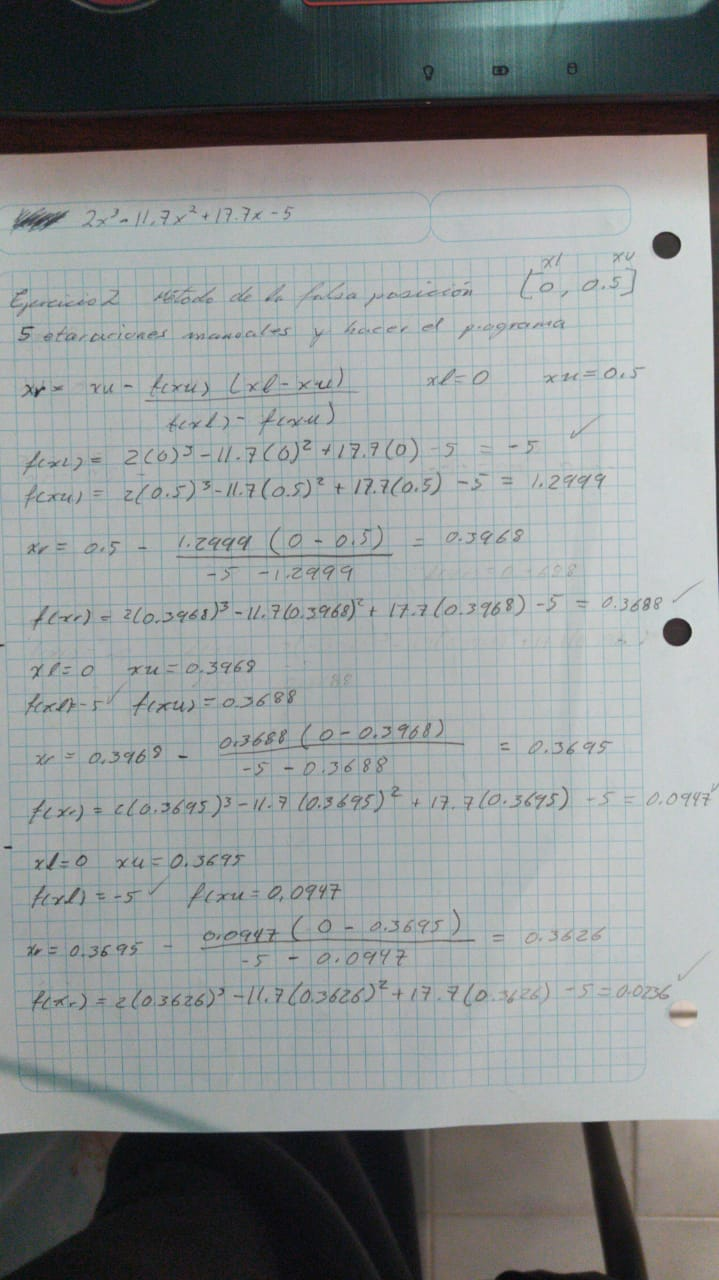 2x³-11.7x²+17.7x-5
xl xu
Ejercicio 2 Método de la falsa posición [0, 0.5]
5 etaraciones manuales y hacer el programa
xr= xu - f(xu) (xl-xu) / f(xl) - f(xu) xl=0 xu=0.5
f(xl)= 2(0)³-11.7(0)²+17.7(0)-5 = -5 ✓
f(xu)= 2(0.5)³-11.7(0.5)²+17.7(0.5) -5 = 1.2999
xr= 0.5 - 1.2999 (0-0.5) / -5 -1.2999 = 0.3968
f(xr)= 2(0.3968)³-11.7(0.3968)²+17.7(0.3968)-5 = 0.3688 ✓
xl=0 xu=0.3968
f(xl)=-5 ✓ f(xu)=0.3688
xr= 0.3968 - 0.3688 (0-0.3968) / -5-0.3688 = 0.3695
f(xr)= 2(0.3695)³-11.7(0.3695)²+17.7(0.3695) -5 = 0.0947 ✓
xl=0 xu=0.3695
f(xl)=-5 ✓ f(xu=0.0947
xr=0.3695 - 0.0947 (0-0.3695) / -5-0.0947 = 0.3626
f(xr)=2(0.3626)³-11.7(0.3626)²+17.7(0.3626) -5=0.0236 ✓